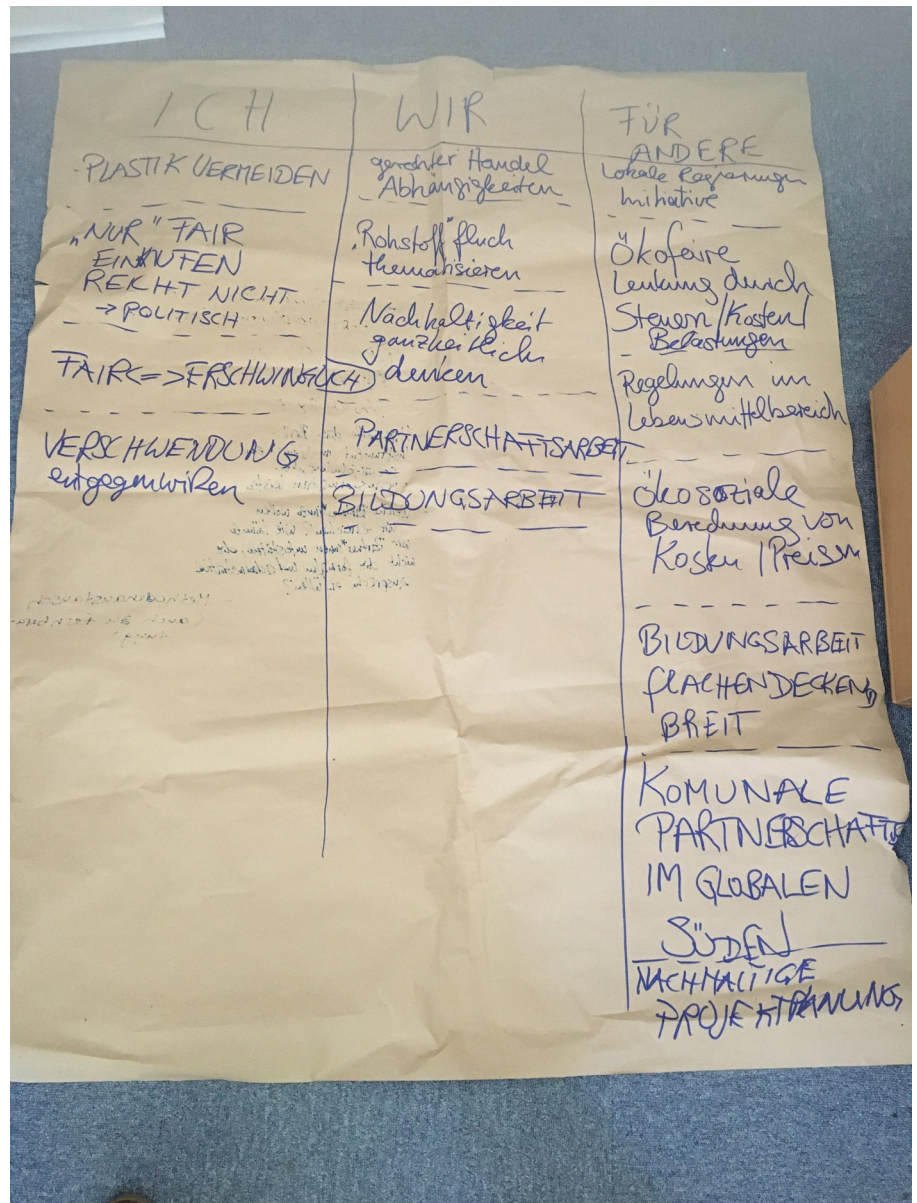 ICH
- PLASTIK VERMEIDEN
„NUR" FAIR
EINKUFEN
REICHT NICHT
→ POLITISCH
FAIR <=> ERSCHWINGLICH
VERSCHWENDUNG
entgegenwirken
WIR
gerechter Handel
Abhängigkeiten
„Rohstoff"fluch
thematisieren
Nachhaltigkeit
ganzheitlich
denken
PARTNERSCHAFTSARBEIT
BILDUNGSARBEIT
FÜR
ANDERE
Lokale Regierungen
Initiative
Ökofaire
Lenkung durch
Steuern/Kosten/
Belastungen
Regelungen im
Lebensmittelbereich
Ökosoziale
Berechnung von
Kosten/Preisen
BILDUNGSARBEIT
FLÄCHENDECKEND
BREIT
KOMUNALE
PARTNERSCHAFTS
IM GLOBALEN
SÜDEN
NACHHALTIGE
PROJEKTPLANUNG